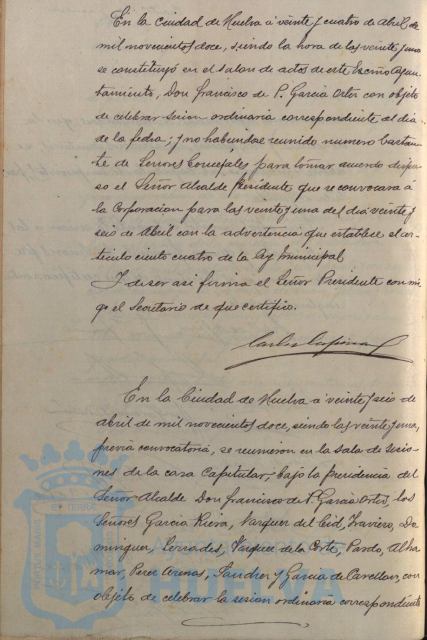 En la Ciudad de Huelva á veinte y cuatro de Abril de
mil novecientos doce, siendo la hora de las veinte y una
se constituyó en el salon de actos de este Excmo Ayun
tamiento, Don Francisco de P. Garcia Ortiz con objeto
de celebrar sesion ordinaria correspondiente al dia
de la fecha; y no habiendose reunido numero bastan
te de Señores Concejales para tomar acuerdo dispu
so el Señor Alcalde Presidente que se convocara á
la Corporacion para las veinte y una del dia veinte y
seis de Abril con la advertencia que establece el ar
ticulo ciento cuatro de la ley Municipal
Y de ser asi firma el Señor Presidente conmi
go el Secretario de que certifico.
En la Ciudad de Huelva á veinte y seis de
abril de mil novecientos doce, siendo las veinte y una,
previa convocatoria, se reunieron en la sala de sesio
nes de la casa Capitular, bajo la Presidencia del
Señor Alcalde Don Francisco de P. Garcia Ortiz, los
Señores Garcia Riera, Vazquez del Cid, Traviero, Do
minguez, Cerrades, Vazquez de la Corte, Pardo, Alha
mar, Perez Arenas, Sanchez y Garcia de con
objeto de celebrar la sesion ordinaria correspondiente